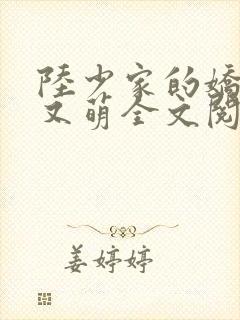 陸少家的嬌
又萌全文閱
姜婷婷